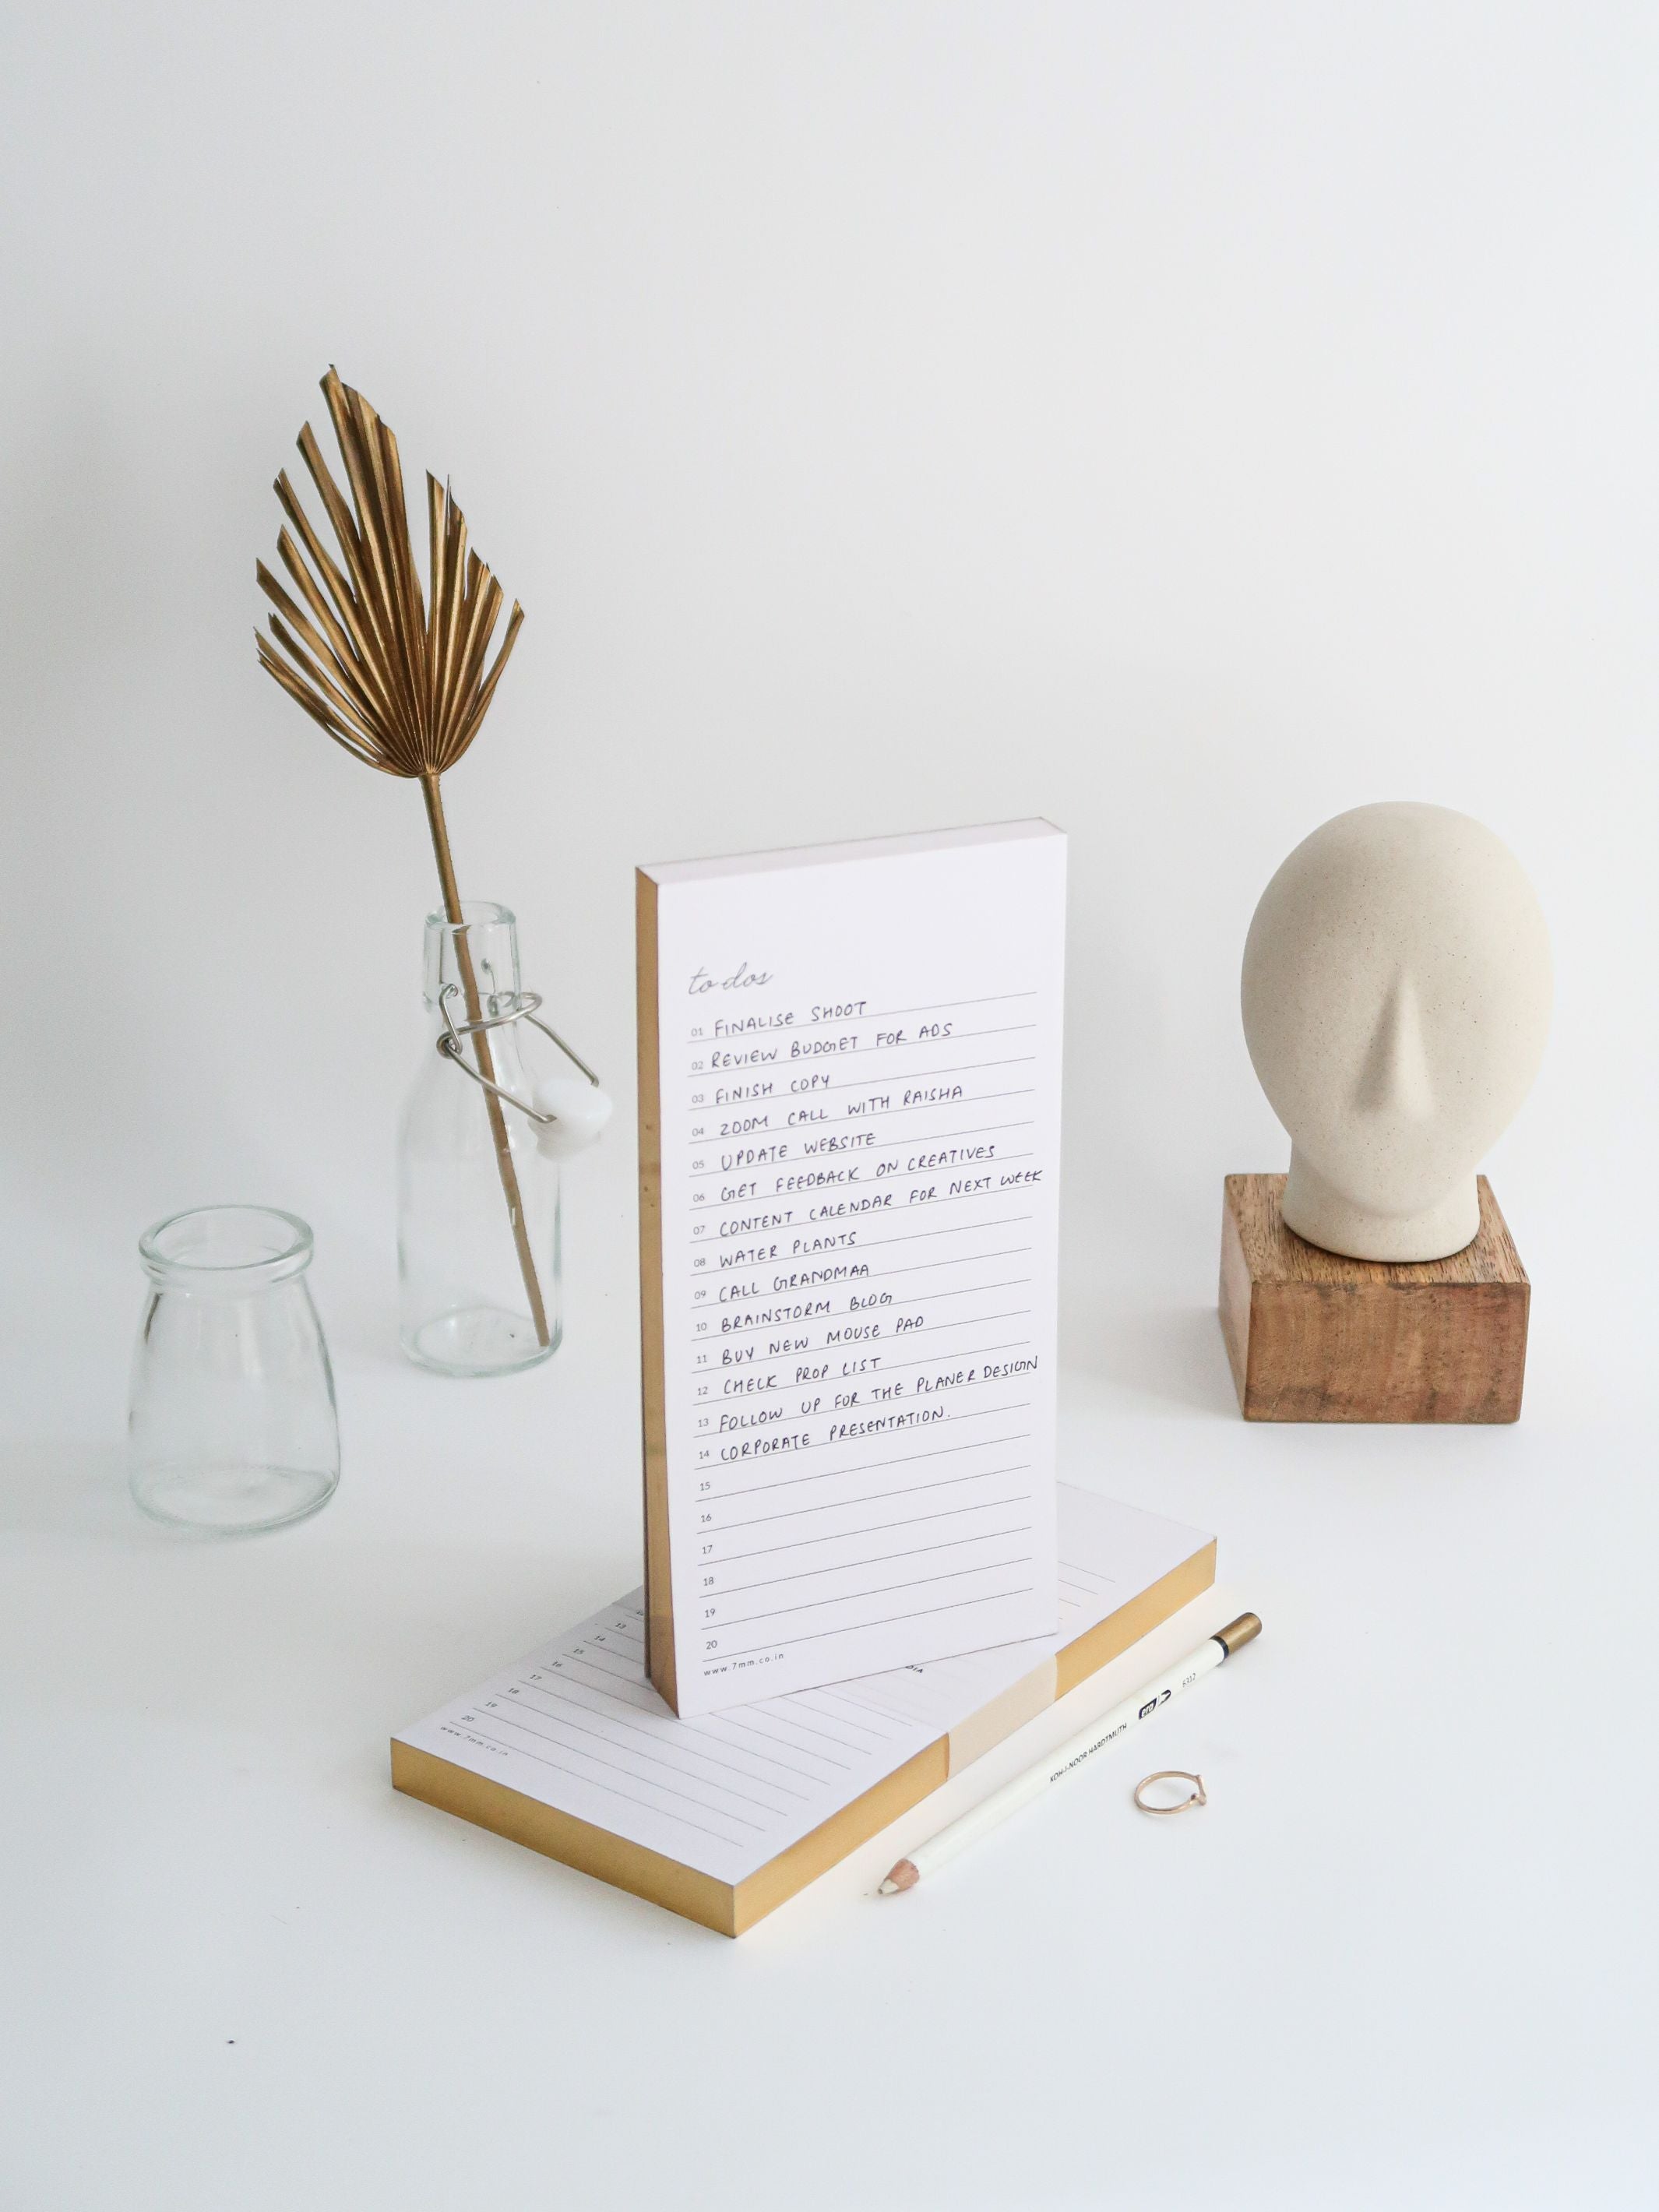 to dos
01 FINALISE SHOOT
02 REVIEW BUDGET FOR ADS
03 FINISH COPY
04 ZOOM CALL WITH RAISHA
05 UPDATE WEBSITE
06 GET FEEDBACK ON CREATIVES
07 CONTENT CALENDAR FOR NEXT WEEK
08 WATER PLANTS
09 CALL GRANDMAA
10 BRAINSTORM BLOG
11 BUY NEW MOUSE PAD
12 CHECK PROP LIST
13 FOLLOW UP FOR THE PLANER DESIGN
14 CORPORATE PRESENTATION.
15
16
17
18
19
20
www.7mm.co.in
13
14
15
16
17
18
19
20
www.7mm.co.in
KOH-I-NOOR HARDTMUTH